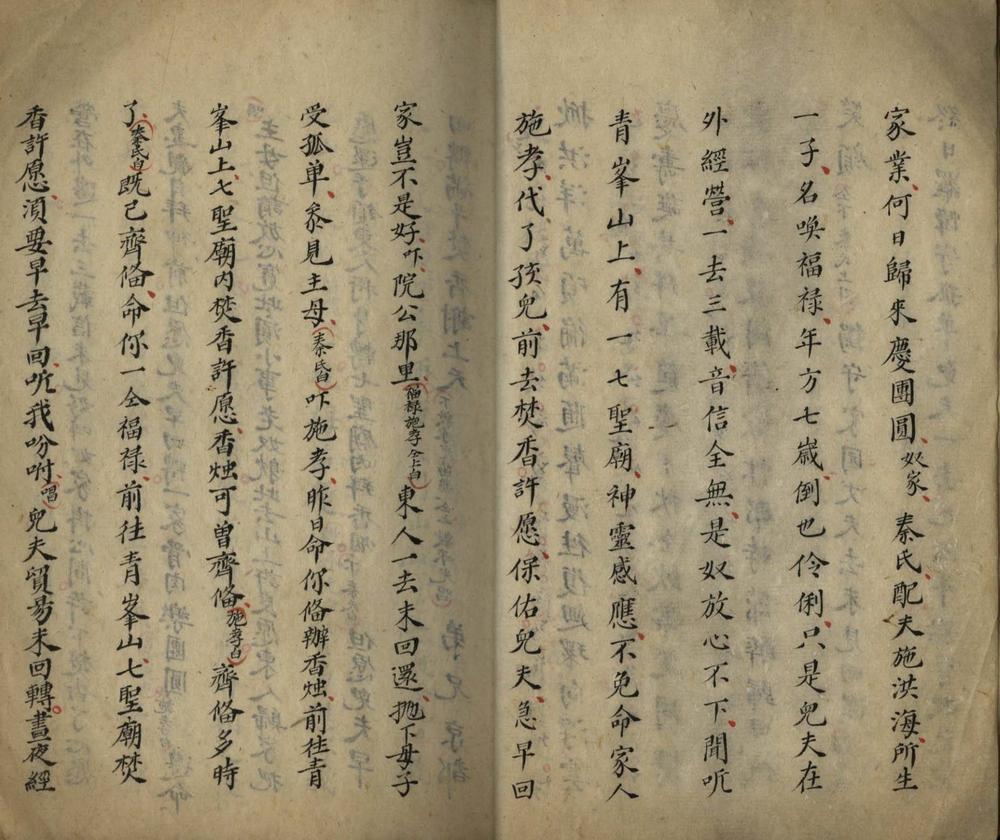 家業何日歸來慶團圓奴家秦氏配夫施洪海所生
一子名喚福禄年方七歲倒也伶俐只是兒夫在
外經營一去三載音信全無是奴放心不下聞听
青峯山上有一七聖廟神靈感應不免命家人
施孝代了孩兒前去焚香許愿保佑兒夫急早回
家豈不是好吓院公那里福禄施孝仝上白東人一去未回還抛下母子
受孤单叅見主母秦氏白吓施孝昨日命你偹辦香烛前往青
峯山上七聖廟内焚香許愿香烛可曽齊偹施孝白齊偹多時
了秦氏白既已齊偹命你一仝福禄前往青峯山七聖廟焚
香許愿湏要早去早回听我吩咐唱兒夫貿易未回轉晝夜經